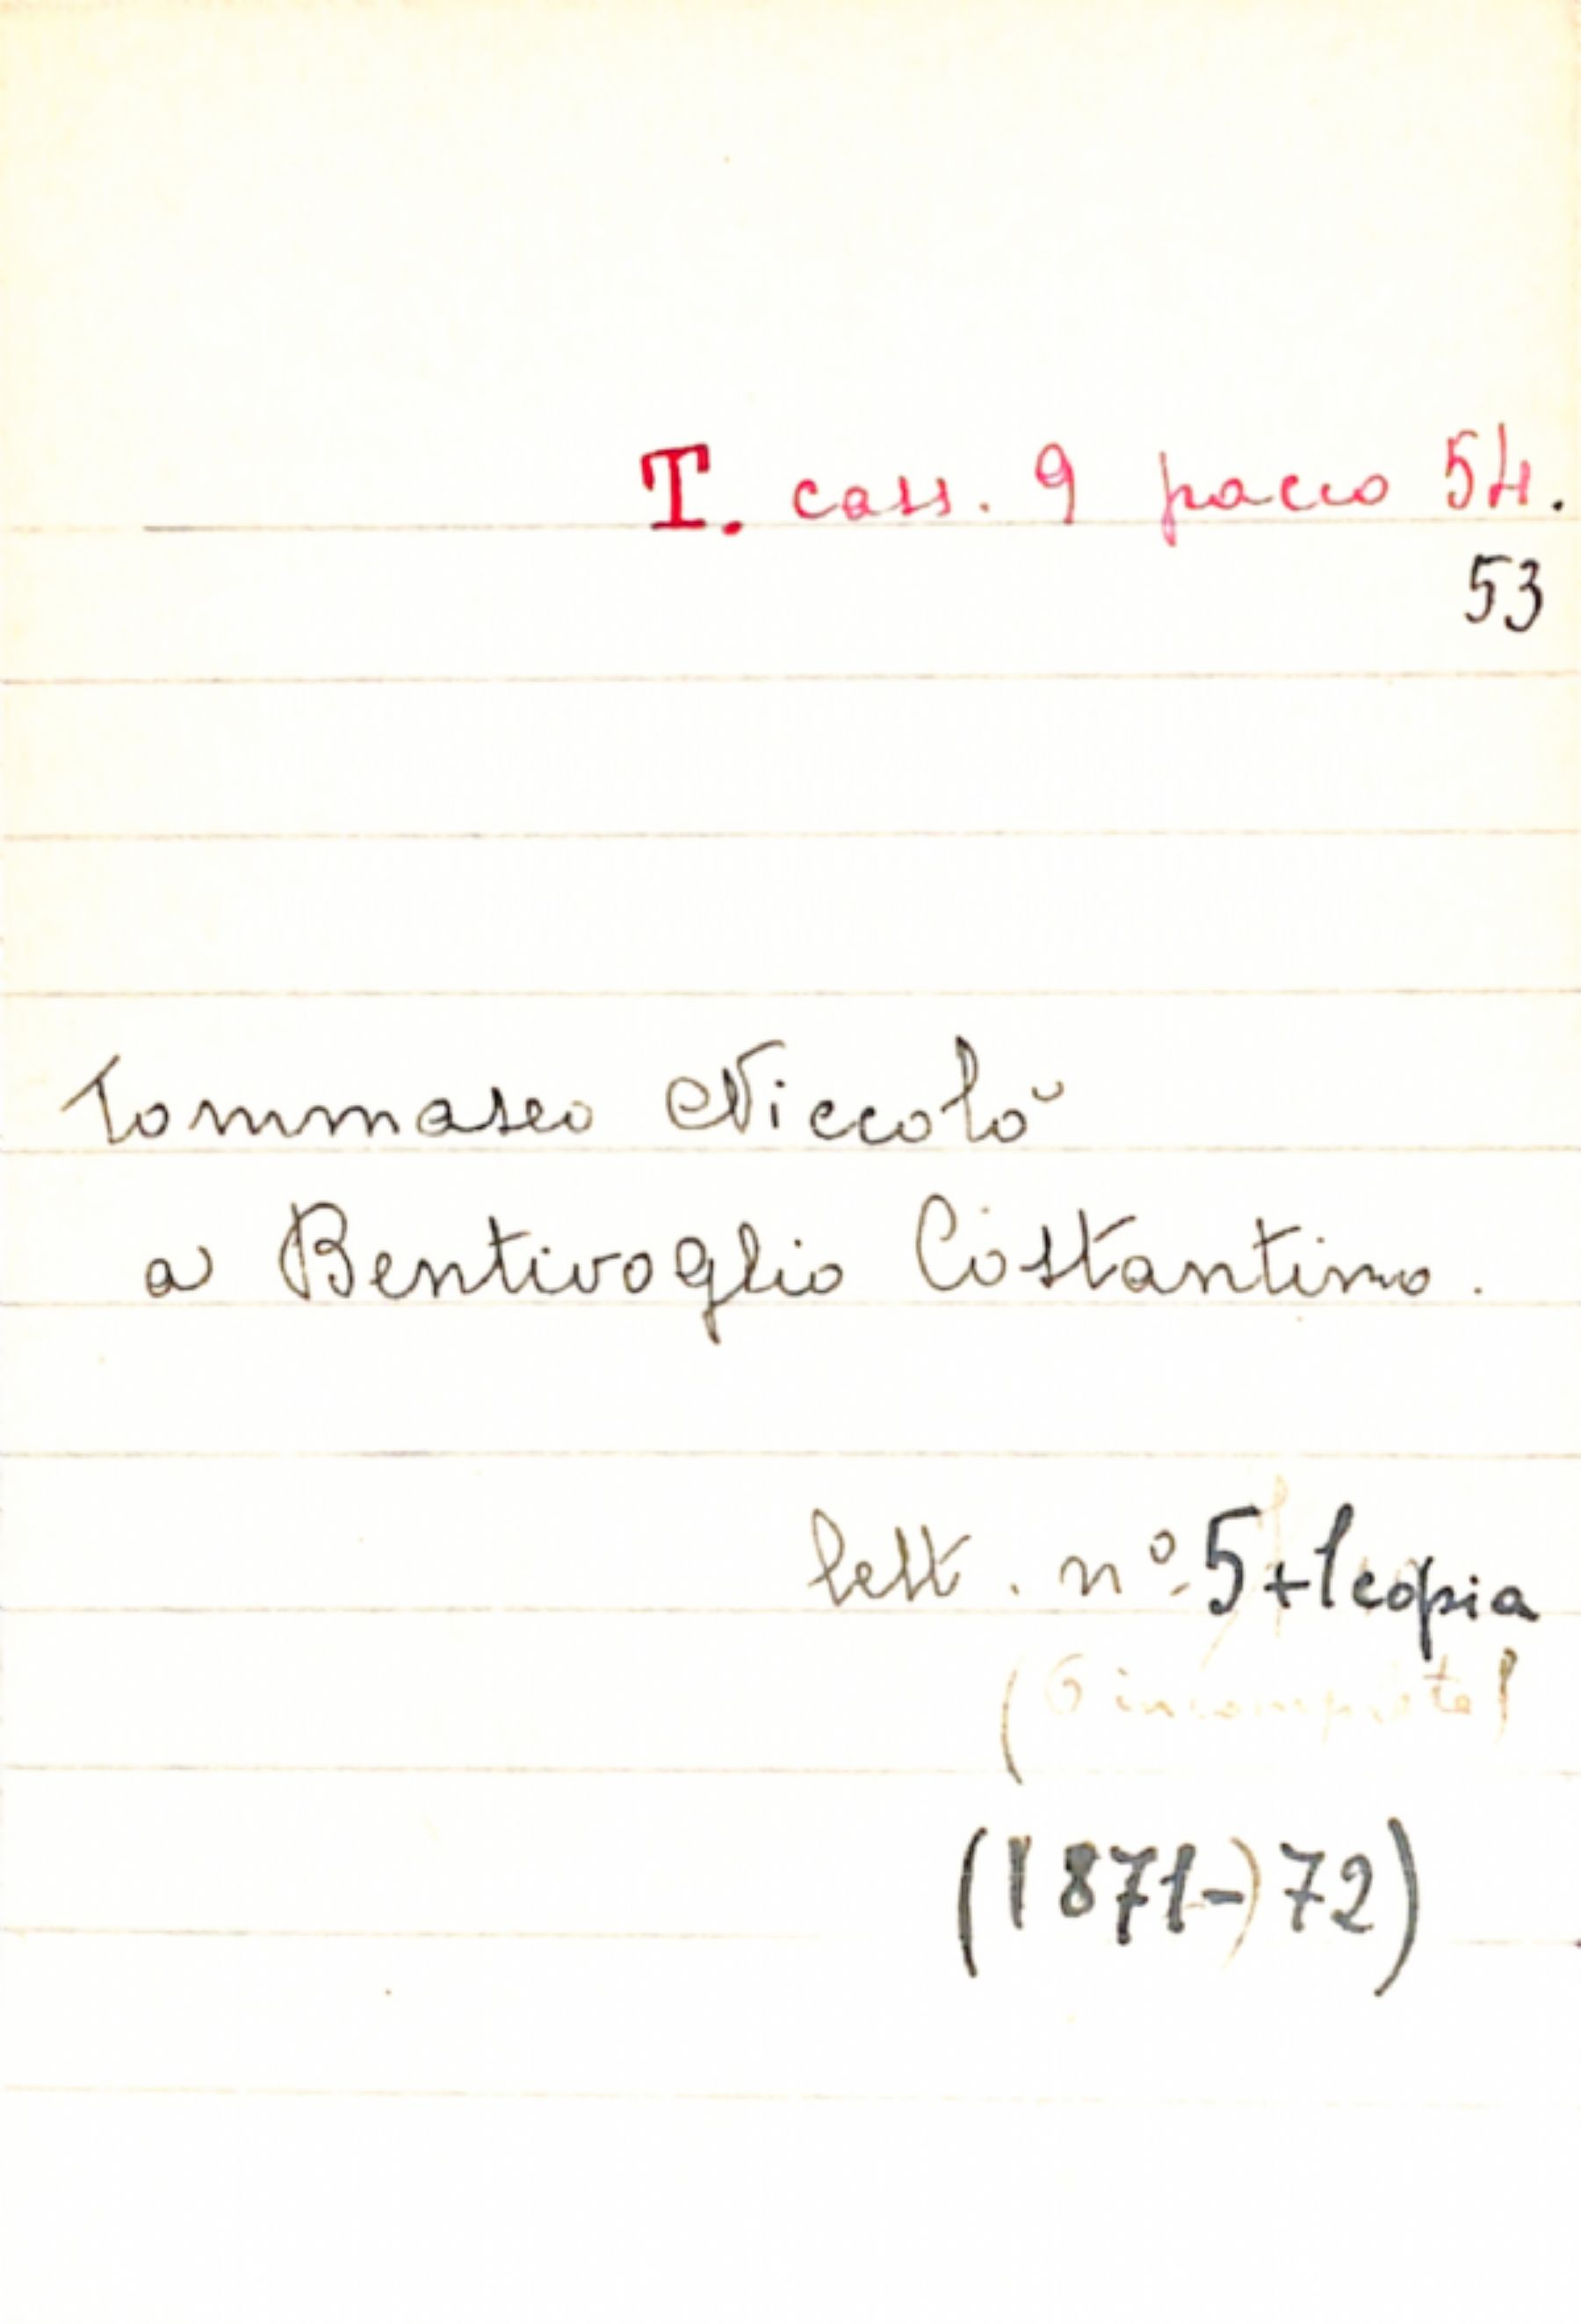 T. cass. 9 pacco 54.
53
Tommaseo Niccolò
a Bentivoglio Costantino.
lett. nº 5+1 copia
(6 incomplete)
(1871-)72)